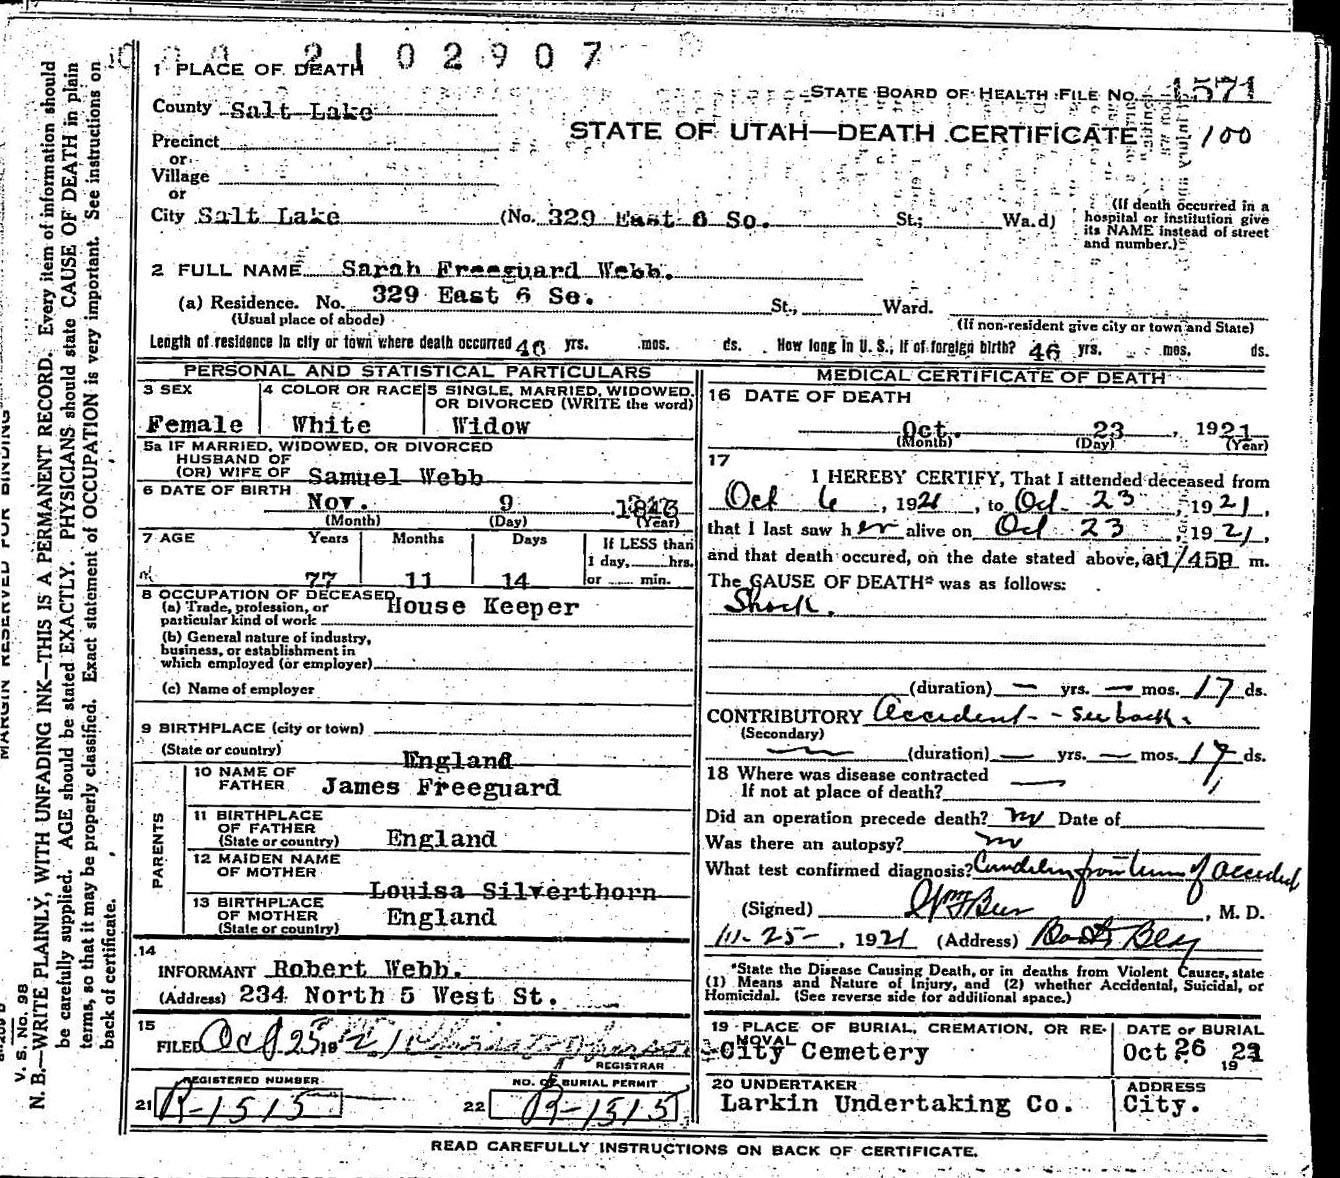 2102907
1 PLACE OF DEATH
STATE BOARD OF HEALTH FILE No. 1571
County Salt Lake
STATE OF UTAH—DEATH CERTIFICATE 100
Precinct
or
Village
or
City Salt Lake (No. 329 East 6 So. St; Wa.d)
(If death occurred in a hospital or institution give its NAME instead of street and number.)
2 FULL NAME Sarah Freeguard Webb.
(a) Residence. No. 329 East 6 So. St., Ward.
(Usual place of abode) (If non-resident give city or town and State)
Length of residence in city or town where death occurred 46 yrs. mos. ds. How long in U. S., if of foreign birth? 46 yrs. mos. ds.
PERSONAL AND STATISTICAL PARTICULARS
3 SEX
Female
4 COLOR OR RACE
White
5 SINGLE, MARRIED, WIDOWED, OR DIVORCED (WRITE the word)
Widow
5a IF MARRIED, WIDOWED, OR DIVORCED
HUSBAND OF
(OR) WIFE OF Samuel Webb
6 DATE OF BIRTH Nov. 9
(Month) (Day) (Year)
7 AGE Years Months Days If LESS than
1 day, hrs.
77 11 14 or min.
8 OCCUPATION OF DECEASED
(a) Trade, profession, or
particular kind of work House Keeper
(b) General nature of industry,
business, or establishment in
which employed (or employer)
(c) Name of employer
9 BIRTHPLACE (city or town)
(State or country) England
PARENTS
10 NAME OF
FATHER James Freeguard
11 BIRTHPLACE
OF FATHER
(State or country) England
12 MAIDEN NAME
OF MOTHER Louisa Silverthorn
13 BIRTHPLACE
OF MOTHER
(State or country) England
14
INFORMANT Robert Webb.
(Address) 234 North 5 West St.
15
FILED Oct 25
REGISTRAR
REGISTERED NUMBER
21 R-1515
NO. OF BURIAL PERMIT
22 R-1515
MEDICAL CERTIFICATE OF DEATH
16 DATE OF DEATH
Oct. 23, 1921
(Month) (Day) (Year)
17
I HEREBY CERTIFY, That I attended deceased from
Oct 6, 1921, to Oct. 23, 1921,
that I last saw her alive on Oct 23, 1921,
and that death occured, on the date stated above, at 1/45P m.
The CAUSE OF DEATH* was as follows:
Shock.
(duration) — yrs. — mos. 17 ds.
CONTRIBUTORY Accident - - See back.
(Secondary)
(duration) — yrs. — mos. 17 ds.
18 Where was disease contracted
If not at place of death?
Did an operation precede death? no Date of
Was there an autopsy? no
What test confirmed diagnosis? Condition from time of accident
(Signed) , M. D.
25, 1921 (Address)
*State the Disease Causing Death, or in deaths from Violent Causes, state
(1) Means and Nature of Injury, and (2) whether Accidental, Suicidal, or
Homicidal. (See reverse side for additional space.)
19 PLACE OF BURIAL, CREMATION, OR RE-
MOVAL
City Cemetery
DATE OF BURIAL
Oct. 26 1921
20 UNDERTAKER
Larkin Undertaking Co.
ADDRESS
City.
READ CAREFULLY INSTRUCTIONS ON BACK OF CERTIFICATE.
MARGIN RESERVED FOR BINDING
V. S. No. 98
N. B.—WRITE PLAINLY, WITH UNFADING INK—THIS IS A PERMANENT RECORD. Every item of information should
be carefully supplied. AGE should be stated EXACTLY. PHYSICIANS should state CAUSE OF DEATH in plain
terms, so that it may be properly classified. Exact statement of OCCUPATION is very important. See instructions on
back of certificate.